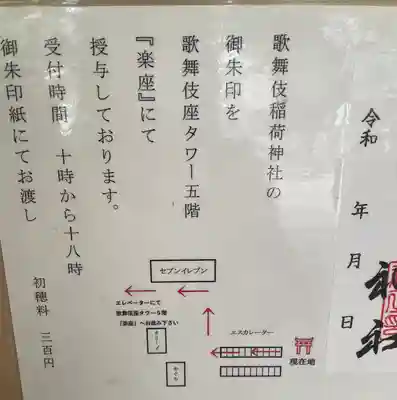 令和　年　月　日
歌舞伎稲荷神社の
御朱印を
歌舞伎座タワー五階
『楽座』にて
授与しております。
受付時間　十時から十八時
御朱印紙にてお渡し
初穂料　三百円
セブンイレブン
エレベーターにて
歌舞伎座タワー5階
「楽座」へお進み下さい
エスカレーター
現在地